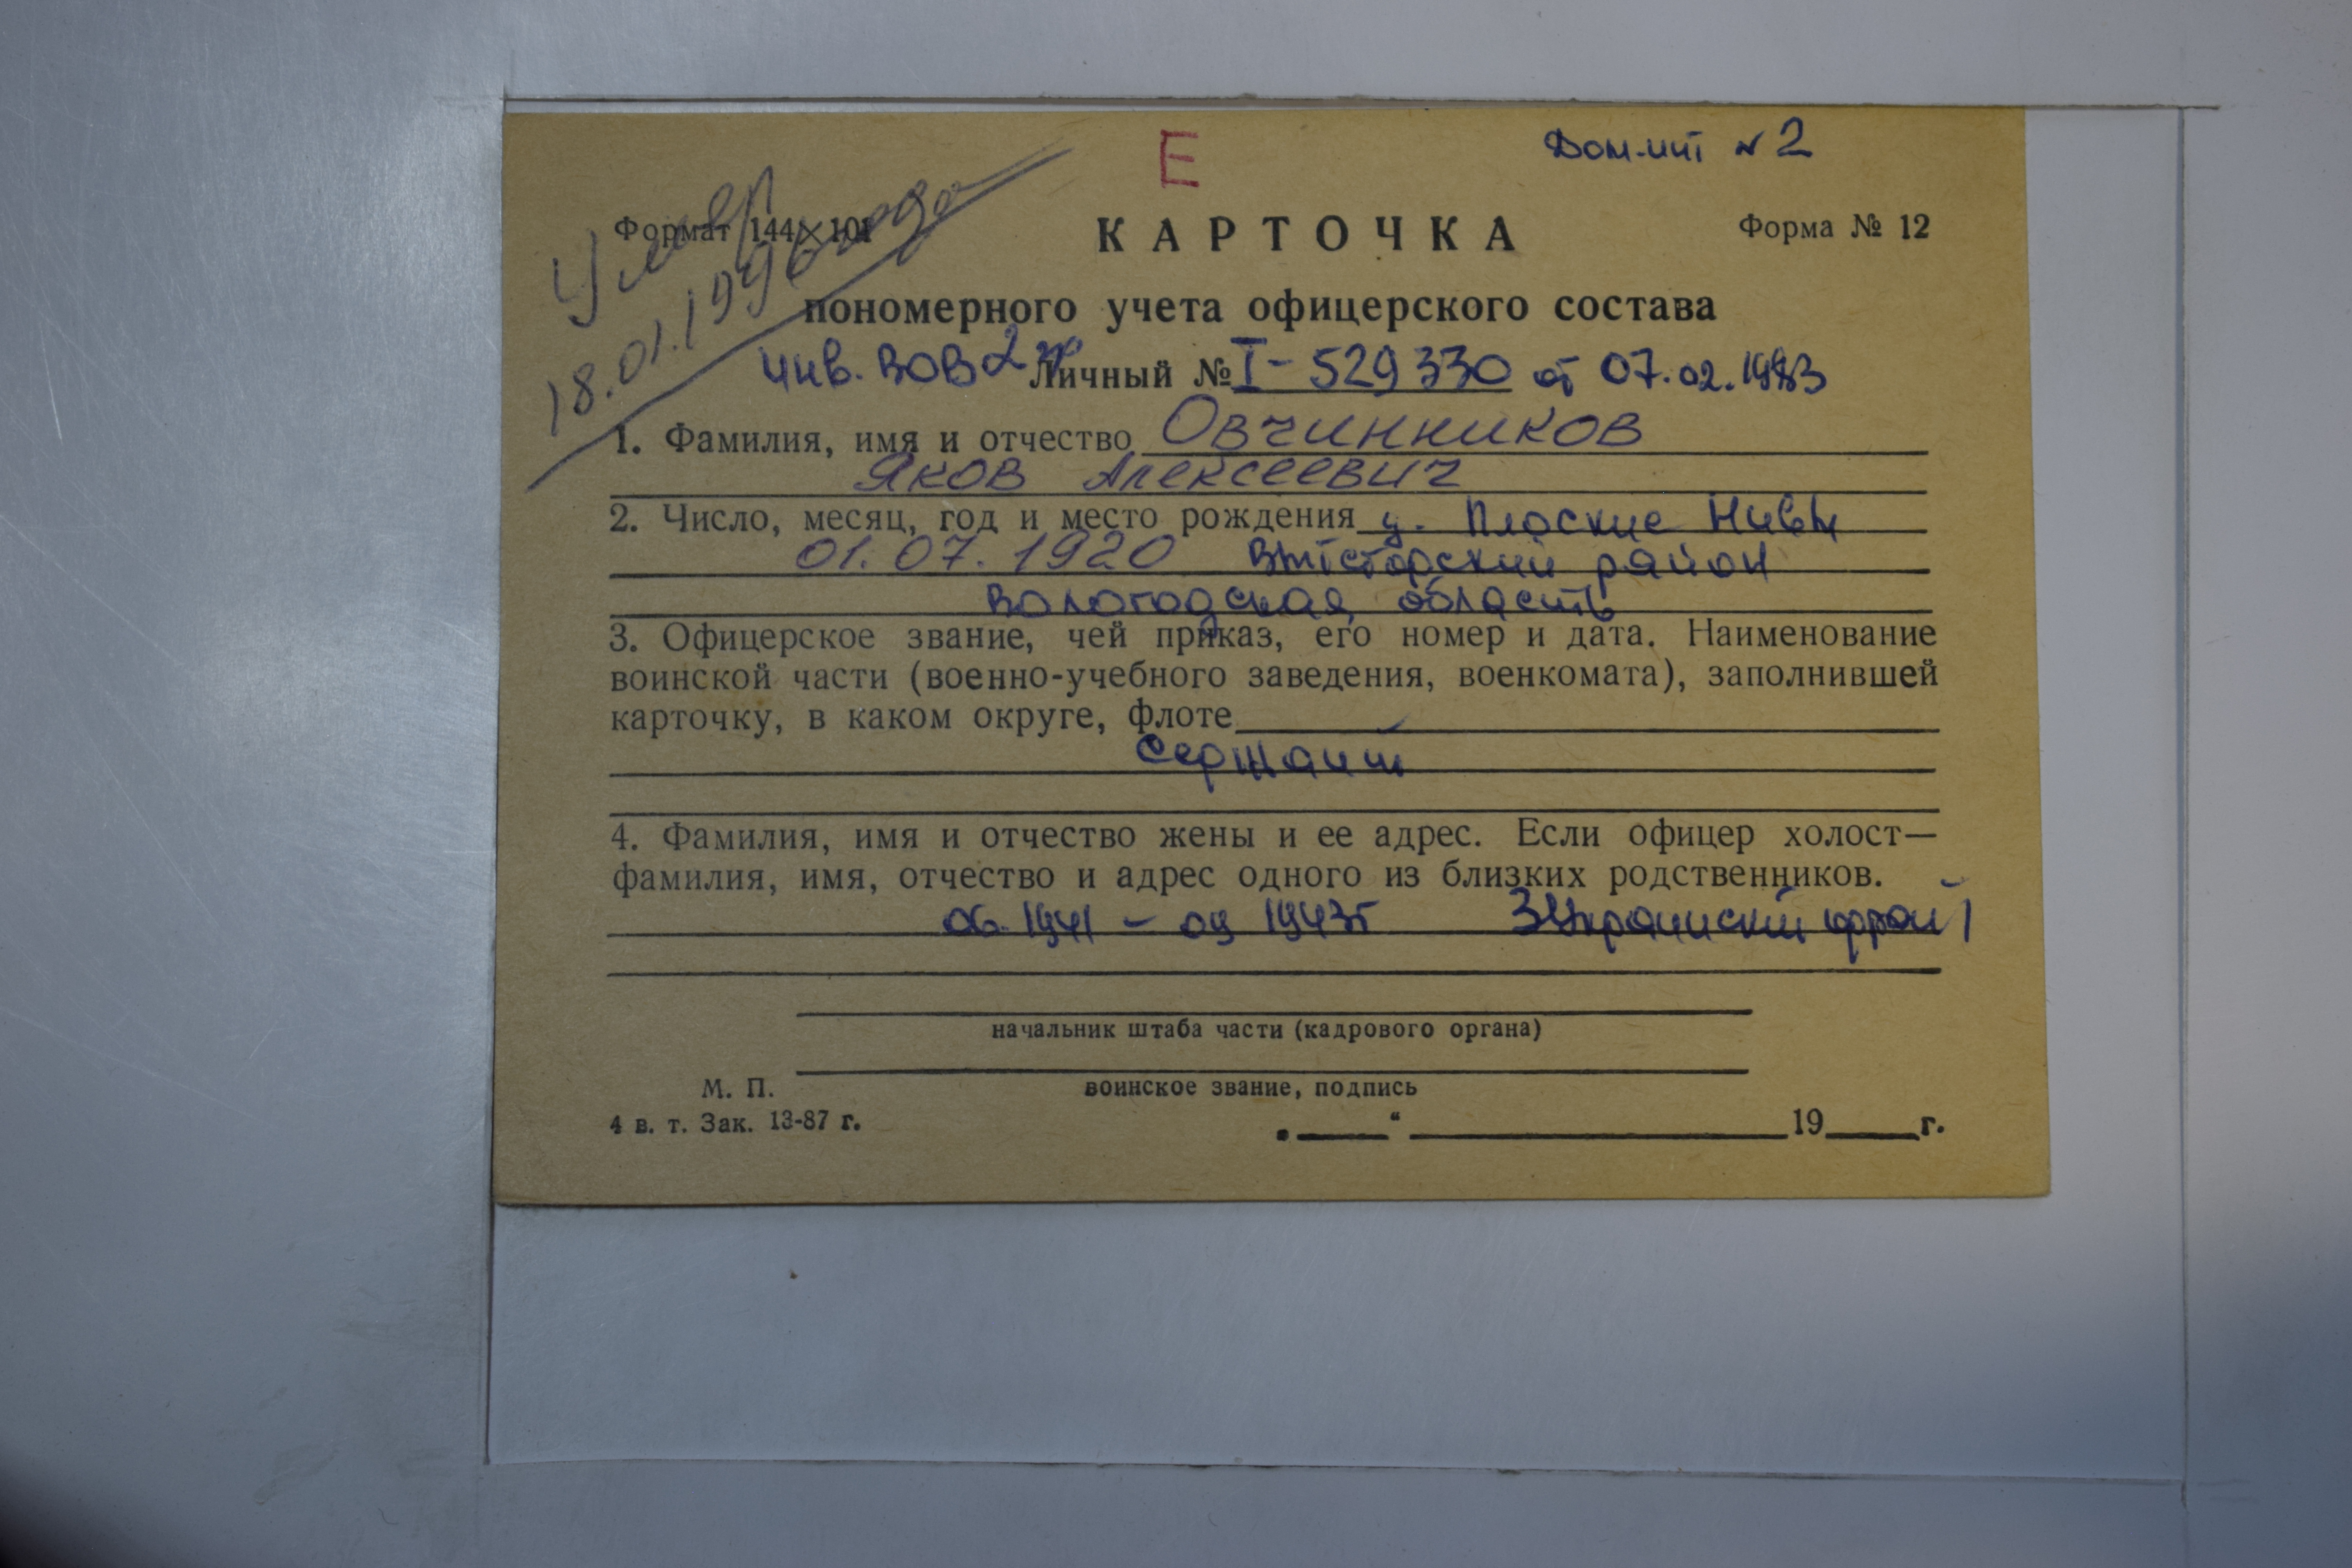 Е
Дом-инт № 2
Умер
18.01.1996 года
Формат 144×101
КАРТОЧКА
Форма № 12
пономерного учета офицерского состава
инв. ВОВ 2 гр
Личный № I-529330 от 07.02.1983
1. Фамилия, имя и отчество Овчинников
Яков Алексеевич
2. Число, месяц, год и место рождения д. Плоские Нивы
01.07.1920 район
Вологодская область
3. Офицерское звание, чей приказ, его номер и дата. Наименование
воинской части (военно-учебного заведения, военкомата), заполнившей
карточку, в каком округе, флоте
Сержант
4. Фамилия, имя и отчество жены и ее адрес. Если офицер холост—
фамилия, имя, отчество и адрес одного из близких родственников.
06.1941 – 09 1943г 3 Украинский фронт
начальник штаба части (кадрового органа)
М. П. воинское звание, подпись
4 в. т. Зак. 13-87 г.
„ “ 19 г.